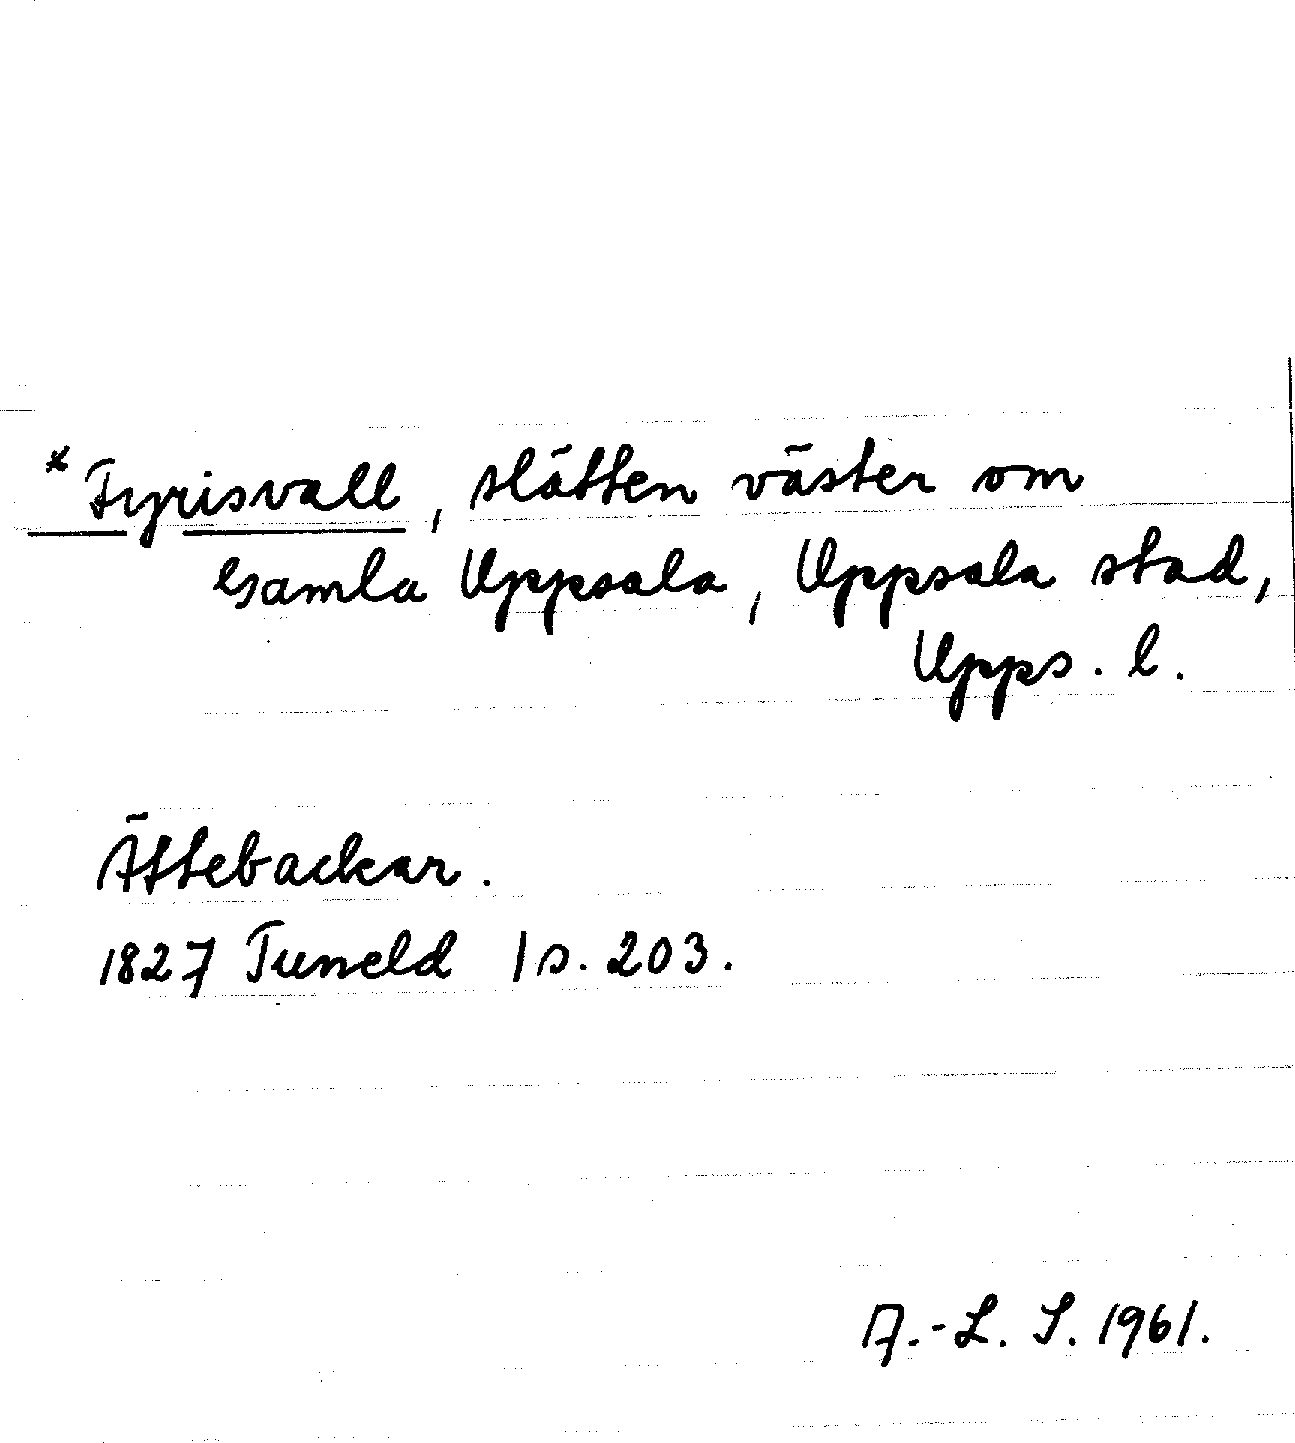 * Fyrisvall, slätten väster om
Gamla Uppsala, Uppsala stad,
Upps. l.
Ättebackar.
1827 Tuneld 1 s. 203.
A.-L. S. 1961.